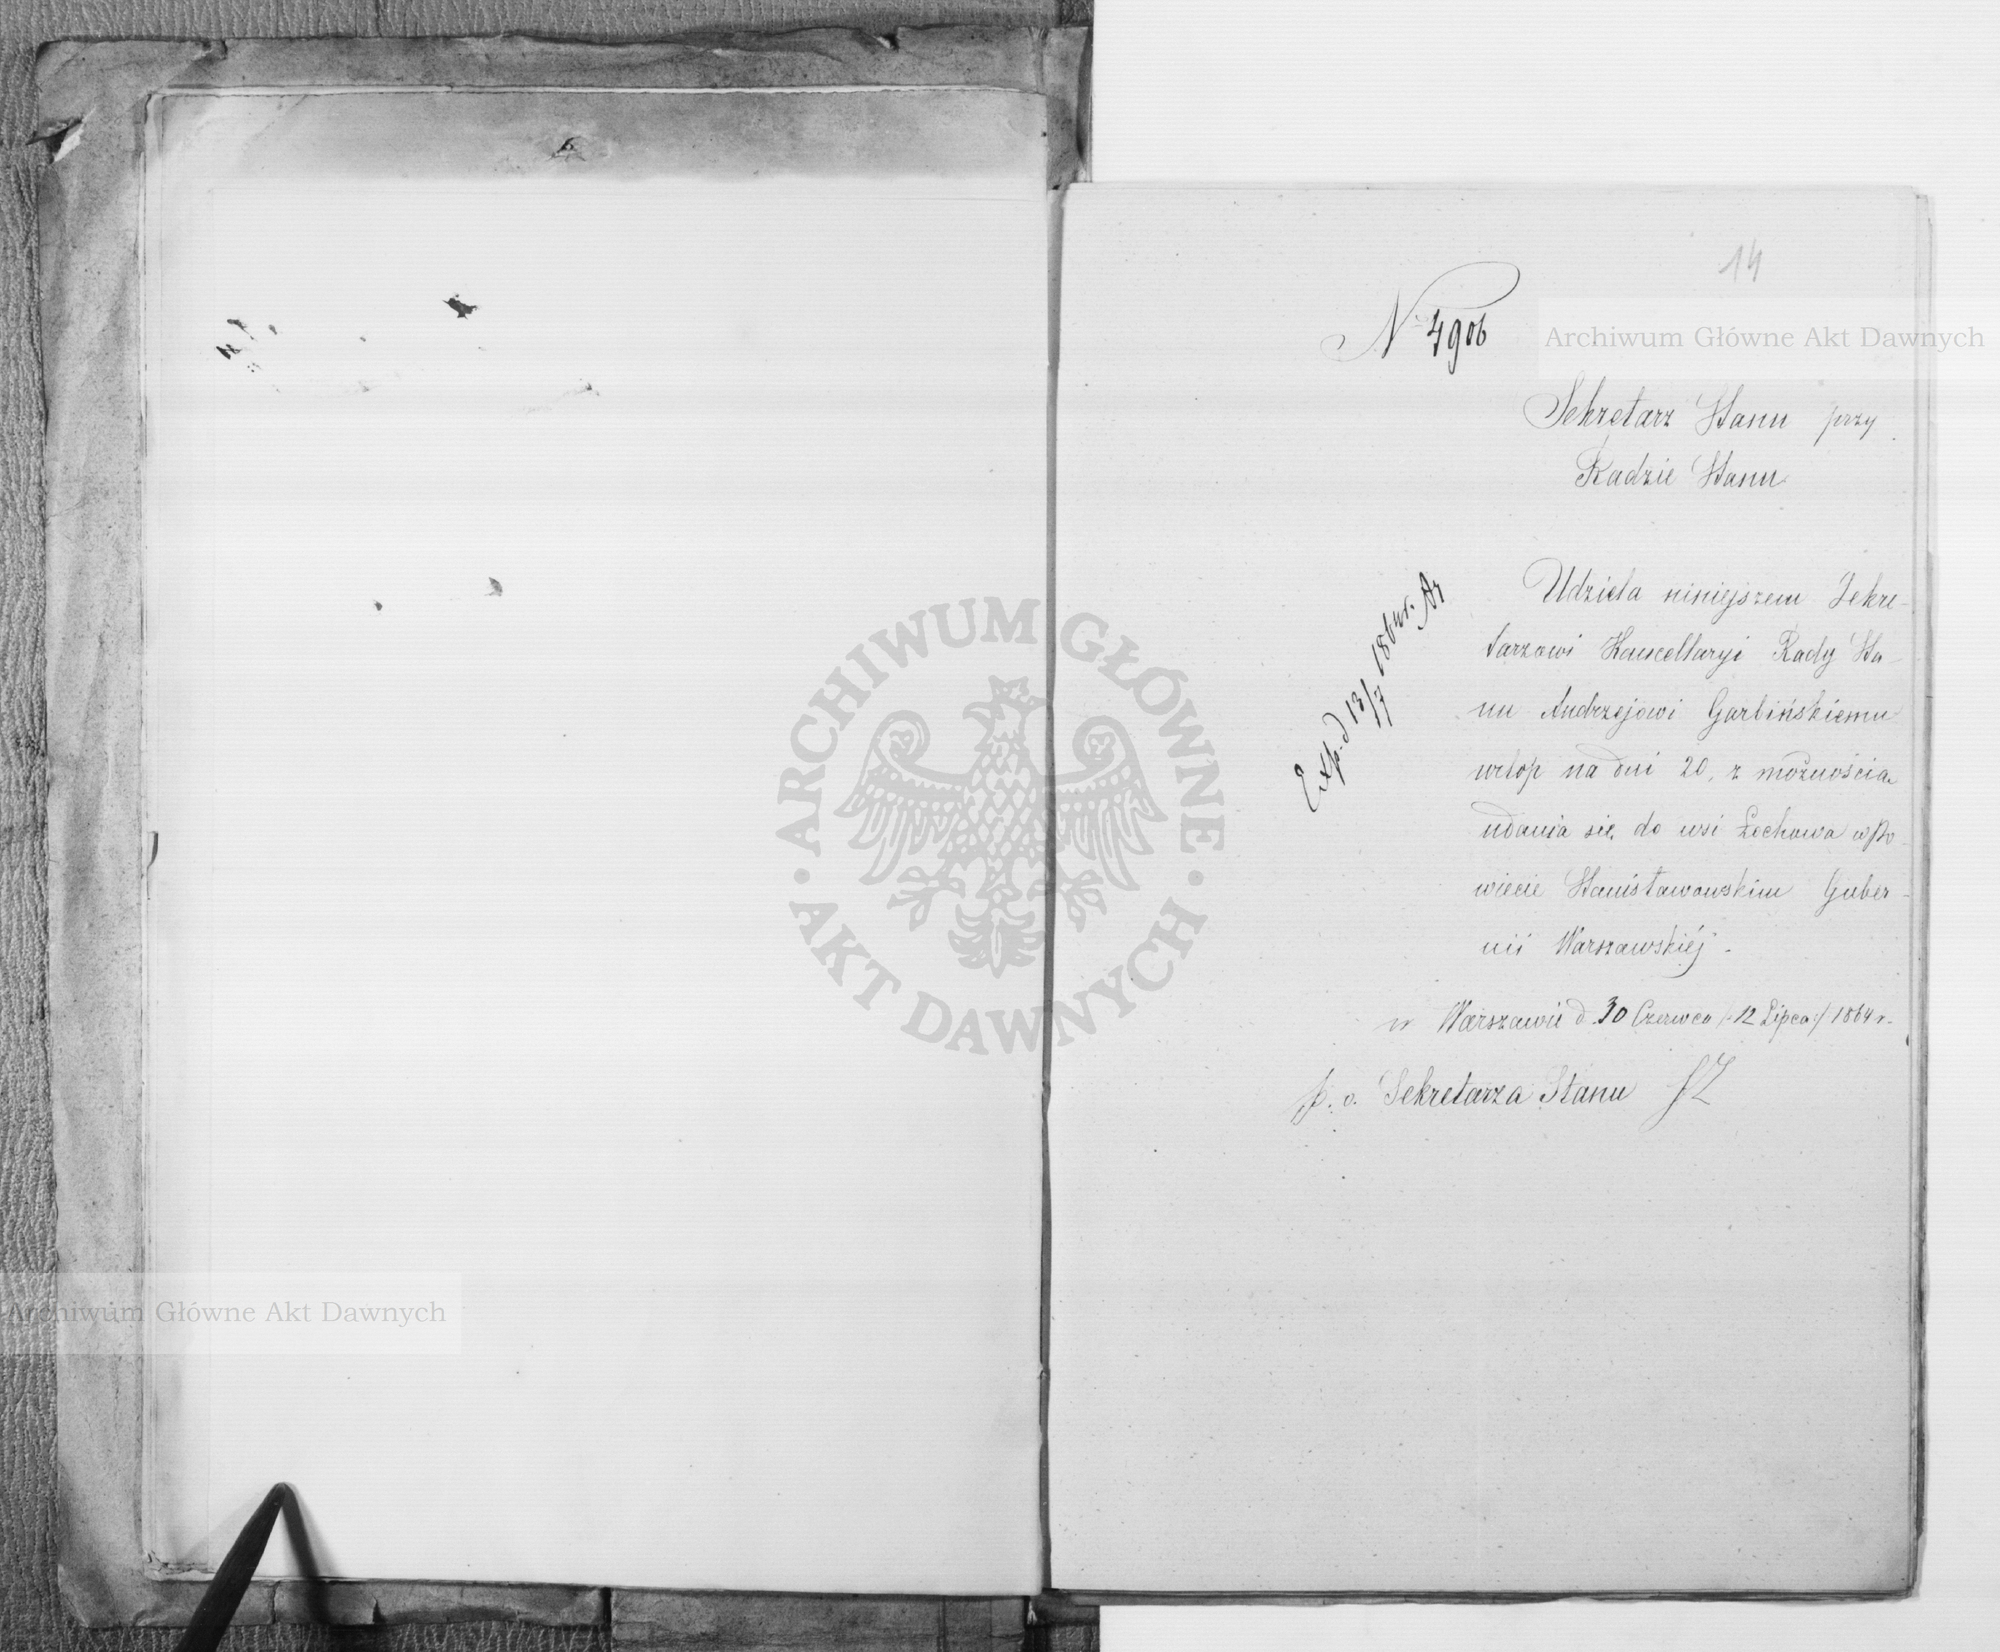 14
No 4906
Archiwum Główne Akt Dawnych
Sekretarz Stanu przy
Radzie Stanu
Udziela niniejszem Sekre-
tarzowi Kancellaryi Rady Sta-
nu Andrzejowi Garbińskiemu
urlop na dni 20, z możnością
udania się do wsi Łochowa w Po-
wiecie Stanisławowskim Guber-
nii Warszawskiéj.
Exp. d 13/7 1864r.
w Warszawie d. 30 Czerwca /:12 Lipca:/ 1864 r.
p. o. Sekretarza Stanu
ARCHIWUM GŁÓWNE
AKT DAWNYCH
Archiwum Główne Akt Dawnych